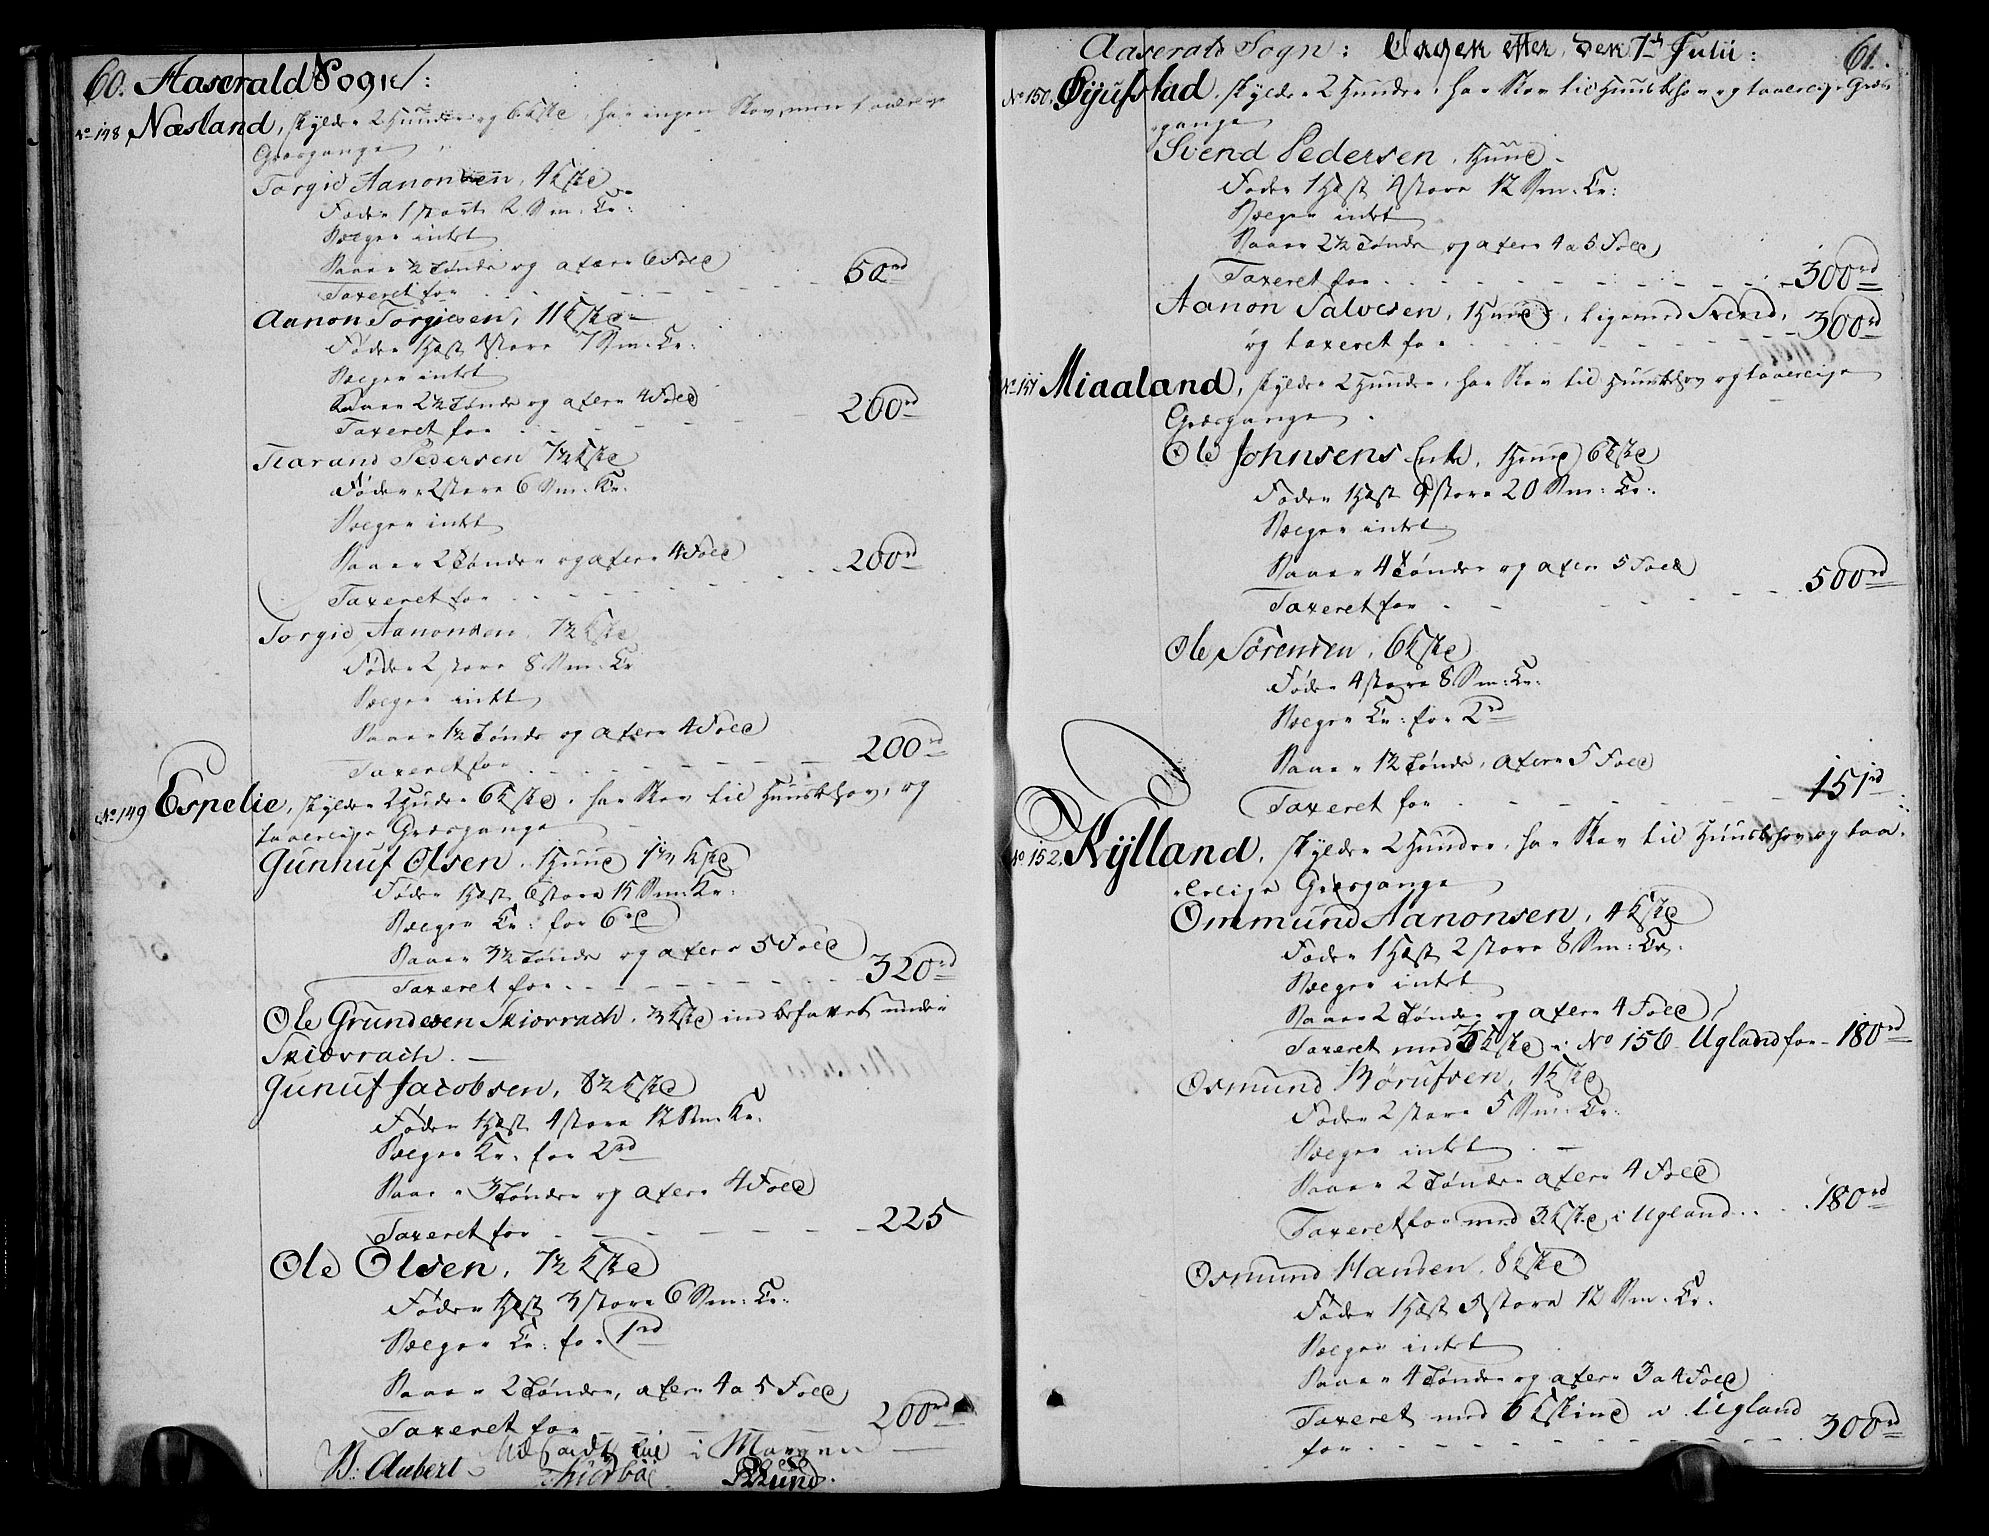 60. Aaserald Sogn:
No 148 Næsland, skylder 2 Huuder og 6 Kske, har ingen Skov, men taalelige
Græsgange
Torgie Aanonsen, 4 Kske
Føder 1 stort 2 Sm: Cr:
Sælger intet
Saaer 1/2 Tønde og avler 6 Fold
Taxeret for 50rd
Aanon Torgiesen, 11 Kske
Føder 1 Hæst 4 store 7 Sm: Cr:
Sælger intet
Saaer 2 1/2 Tønde og avler 4 Fold
Taxeret for 260rd
Tarand Pedersen 7 1/2 Kske
Føder 2 store 6 Sm: Kr:
Sælger intet
Saaer 2 Tønder og avler 4 Fold
Taxeret for 200rd
Torgie Aanonsen, 7 1/2 Kske
Føder 2 store 8 Sm: Cr
Sælger intet
Saaer 1 1/2 Tønde og avler 4 Fold
Taxeret for 200rd
No 149 Espelie, skylder 2 Huder 6 Kske, har Skov til Huusbehov, og
taalelige Græsgange
Gunnuf Olsen, 1 Huud Kske
Føder 1 Hæst 6 store 15 Sm: Kr:
Sælger Cr: for 6rd
Saaer 3 1/2 Tønde og avler 5 Fold
Taxeret for 320rd
Ole Grundesen Skiævrach, 3 Kske indbefattet under
Skiævrach.
Gunuf Jacobsen, 8 1/2 Kske
Føder 1 Hæst 4 store 12 Sm: Kr:
Sælger Kr: for 2rd
Saaer 3 Tønder og avler 4 Fold
Taxeret for 225
Ole Olsen, 7 1/2 Kske
Føder 1 Hæst 3 store 6 Sm: Cr:
Sælger Cr: for 1rd
Saaer 2 Tønder, avler 4 a 5 Fold
Taxeret for 200rd
B: Aubert i Morgen
Aaserals Sogn: Dagen efter, den 7de Julii: 61.
No 150. Øyufstad, skylder 2 Huuder, har Skov til Huusbehov og taalelige Græs
gange
Svend Pedersen, 1 Huud
Føder 1 Hæst 4 store 12 Sm: Cr:
Sælger intet
Saaer 2 1/2 Tønde og avler 4 a 5 Fold
Taxeret for 300rd
Aanon Salvesen, 1 Huud, ligemed Svend,
og taxeret for 300rd
No 151 Miaaland, skylder 2 Huuder, har Skov til Huusbehov og taalelige
Græsgange
Ole Johnsens Enke, 1 Huud 6 Kske
Føder 1 Hæst 9 store 20 Sm: Cr:
Sælger intet
Saaer 4 Tønder og avler 5 Fold
Taxeret for 500rd
Ole Sørensen, 6 Kske
Føder 4 store 8 Sm: Cr:
Sælger Cr: for 2rd
Saaer 1 1/2 Tønde, avler 5 Fold
Taxeret for 151rd
No 152. Kylland, skylder 2 Huuder, har Skov til Huusbehov og taa-
lelige Græsgange
Ommund Aanonsen, 4 Kske
Føder 1 Hæst 2 store 8 Sm: Cr:
Sælger intet
Saaer 2 Tønder og avler 4 Fold
Taxeret med 3 Kske i No 156 Ugland for 180rd
Osmund Børufsen, 4 Kske
Føder 2 store 5 Sm: Cr:
Sælger intet
Saaer 2 Tønder avler 4 Fold
Taxeret for med 3 Kske i Ugland 180rd
Osmund Hansen, 8 Kske
Føder 1 Hæst 5 store 12 Sm: Cr:
Sælger intet
Saaer 4 Tønder og avler 3 a 4 Fold
Taxeret med 6 Kskind i Ugland
for 300rd